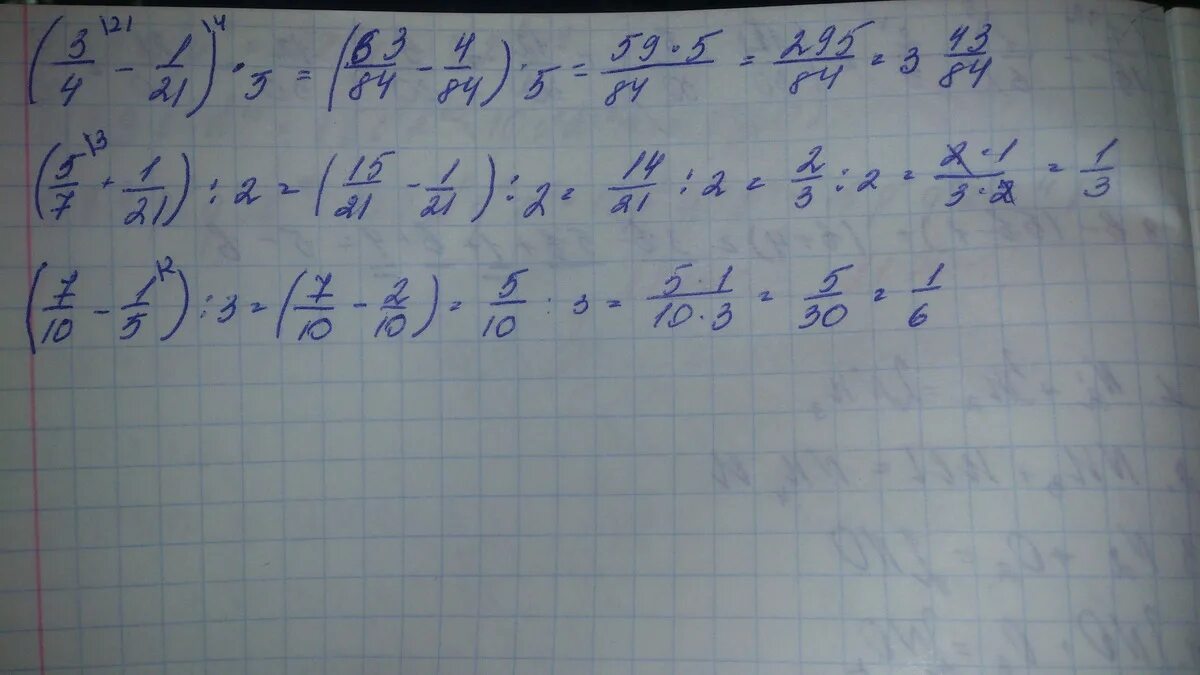 (3/4 \21 - 1/21 \4) · 5 = (63/84 - 4/84) · 5 = 59·5/84 = 295/84 = 3 43/84
(5/7 \3 - 1/21) : 2 = (15/21 - 1/21) : 2 = 14/21 : 2 = 2/3 : 2 = 2·1/3·2 = 1/3
(7/10 - 1/5 \2) : 3 = (7/10 - 2/10) = 5/10 : 3 = 5·1/10·3 = 5/30 = 1/6